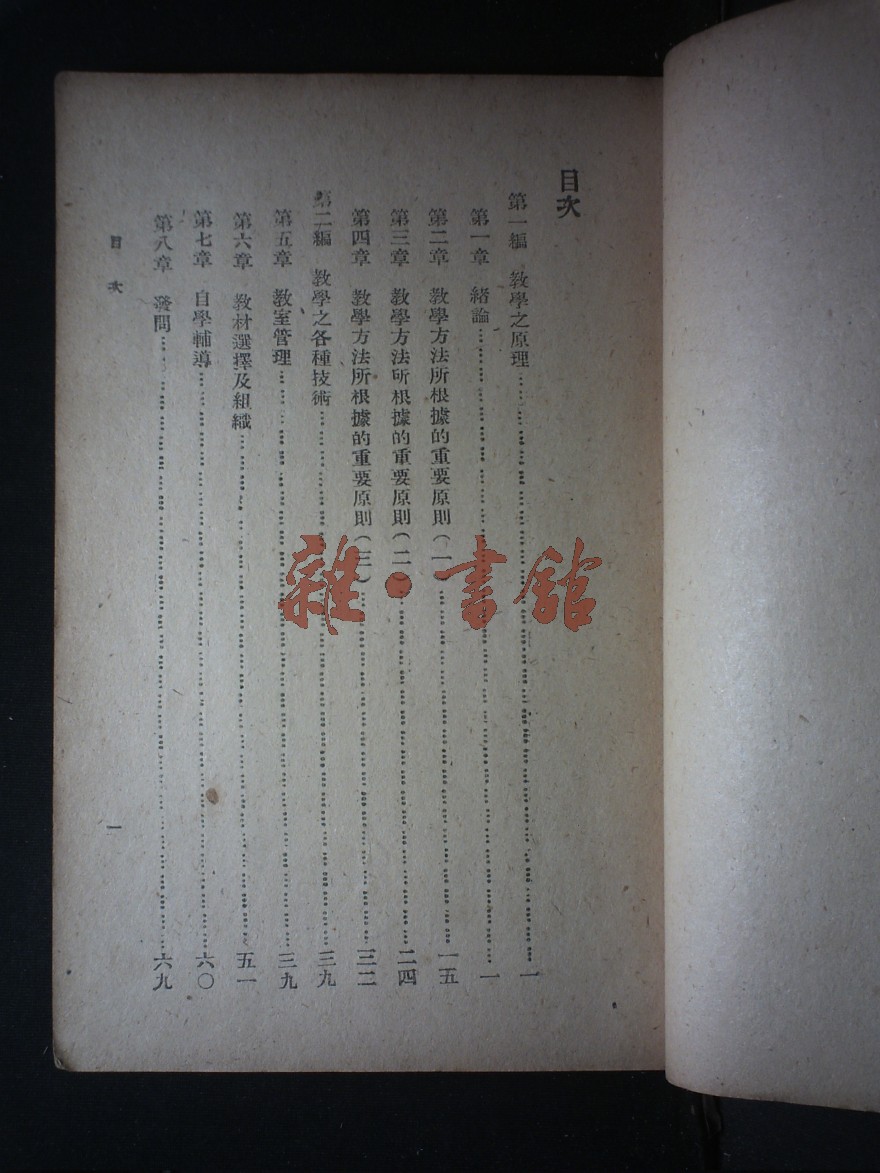 目次
第一編 教學之原理……一
第一章 緒論……一
第二章 教學方法所根據的重要原則(一)……一五
第三章 教學方法所根據的重要原則(二)……二四
第四章 教學方法所根據的重要原則(三)……三二
第二編 教學之各種技術……三九
第五章 教室管理……三九
第六章 教材選擇及組織……五一
第七章 自學輔導……六〇
第八章 發問……六九
目次
一
雜·書館